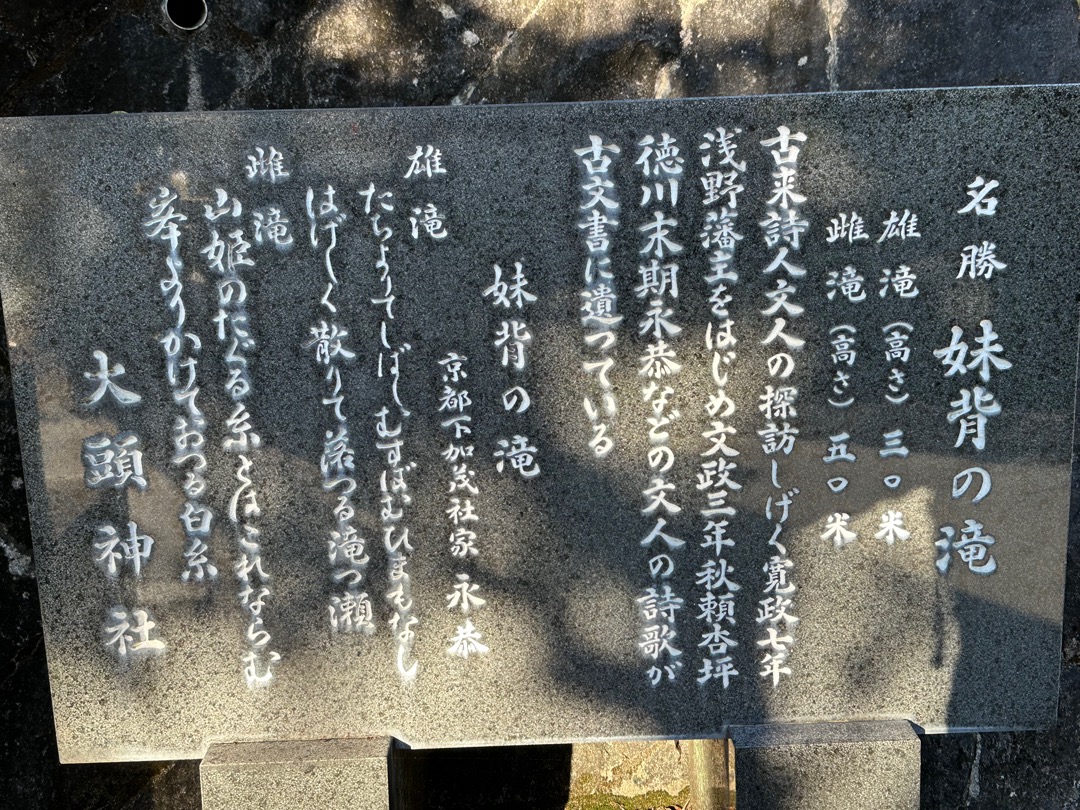 名勝 妹背の滝
雄滝(高さ)三〇米
雌滝(高さ)五〇米
古来詩人文人の探訪しげく寛政七年
浅野藩主をはじめ文政三年秋頼杏坪
徳川末期永恭などの文人の詩歌が
古文書に遺っている
妹背の滝
京都下加茂社家 永恭
雄滝
たちよりてしばしむすばむひまもなし
はげしく散りて落つる滝つ瀬
雌滝
山姫のたぐる糸とはこれならむ
峯よりかけておつる白糸
大頭神社